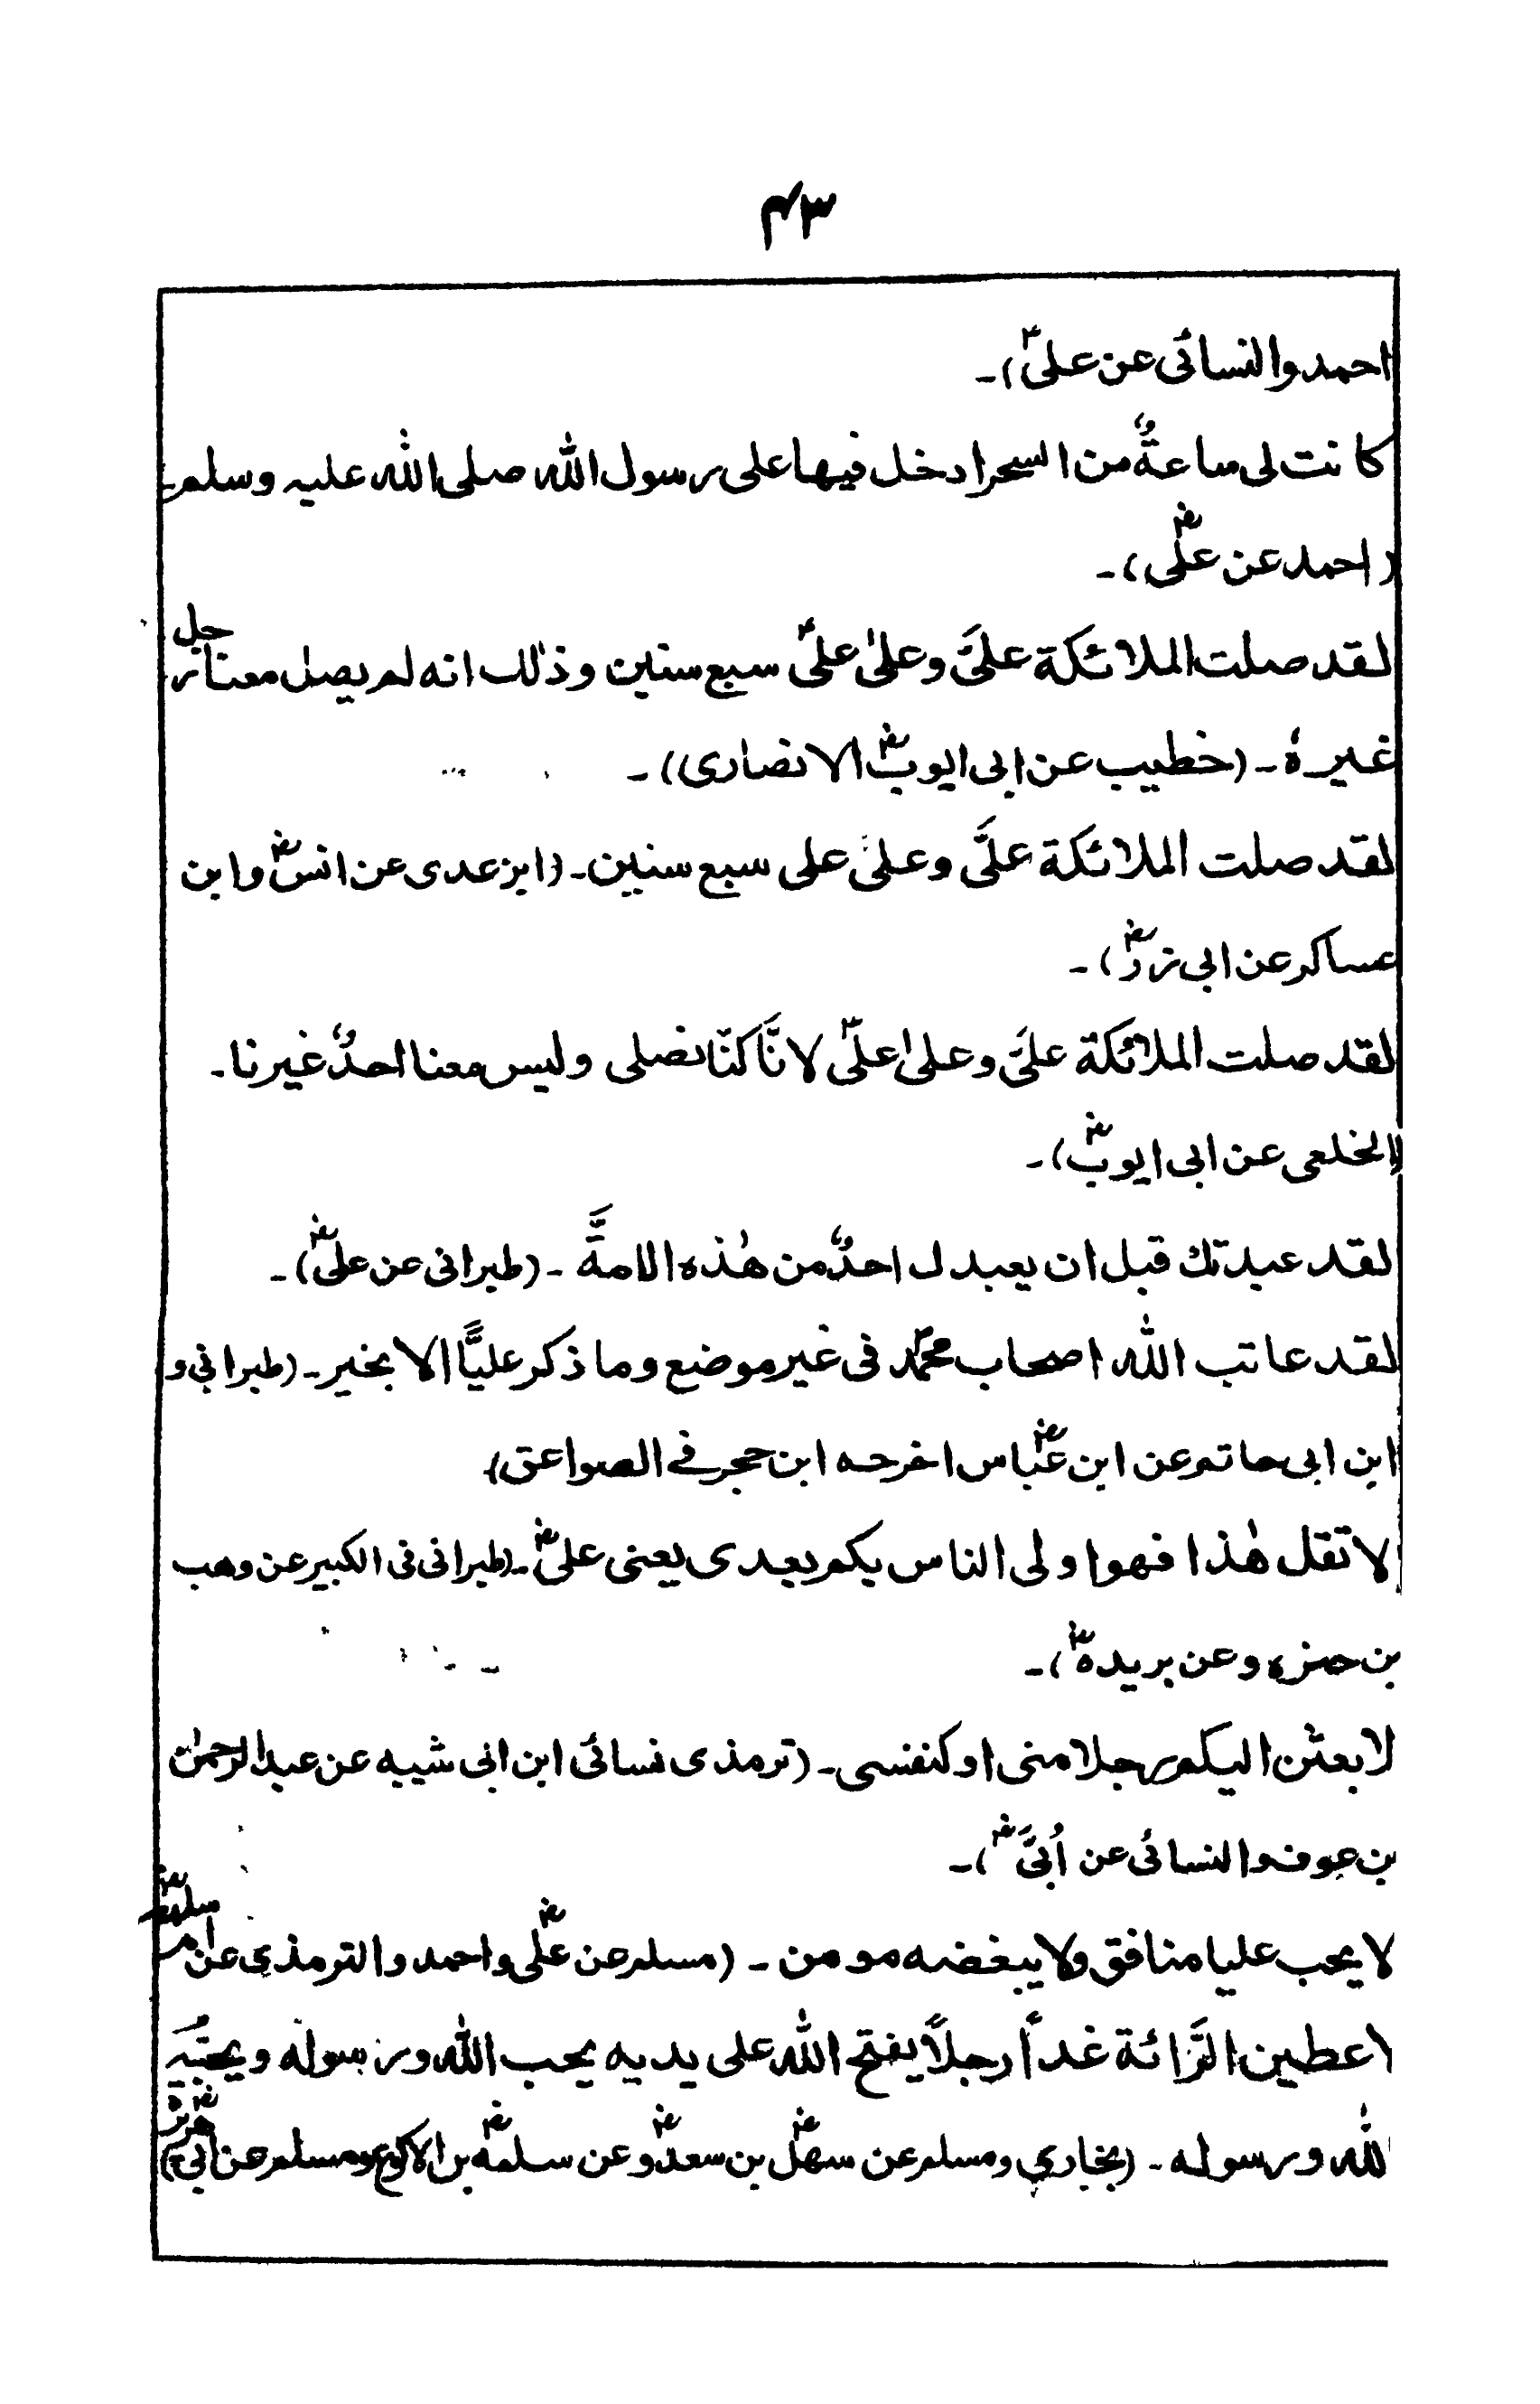 ۴۳
احمد والنسائی عن علیؓ)۔
کانت لی ساعةٌ من السحر ادخل فیها علی رسول الله صلی الله علیه وسلم
(احمد عن علیؓ)۔
لقد صلت الملائکة علیَّ وعلیٰ علیؑ سبع سنین وذٰلک انه لم یصل معنا رجل
غیرهٗ۔ (خطیب عن ابی ایوبؓ الانصاری)۔
لقد صلت الملائکة علیَّ وعلیٰ علی سبع سنین۔ (ابن عدی عن انسؓ وابن
عساکر عن ابی زرؓ)۔
لقد صلت الملائکة علیَّ وعلیٰ علیؑ لانَّا کنّا نصلی ولیس معنا احدٌ غیرنا۔
(الخلعی عن ابی ایوبؓ)۔
لقد عبدتك قبل ان یعبدك احدٌ من هٰذه الامةَّ۔ (طبرانی عن علیؓ)۔
لقد عاتب الله اصحاب محمدؐ فی غیر موضع وما ذکر علیًّا الا بخیر۔ (طبرانی و
ابن ابی حاتم عن ابن عباسؓ اخرجه ابن حجر فے الصواعق)
لا تقل هٰذا فهو اولی الناس بکم بعدی یعنی علیؓ۔ (طبرانی فی الکبیر عن وهب
بن حمزه وعن بریدهؓ)۔
لا بعثن الیکم رجلا منی او کنفسی۔ (ترمذی نسائی ابن ابی شیبه عن عبد الرحمٰن
بن عوف والنسائی عن اُبیَّؓ)۔
لا یحب علیا منافق ولا یبغضه مومن۔ (مسلم عن علیؓ واحمد والترمذی عن ام سلمهؓ
لاعطین الرَّائة غداً رجلاً یفتح الله علی یدیه یحب الله ورسوله ویحبّه
الله ورسوله۔ (بخاری ومسلم عن سهلؓ بن سعدؓ وعن سلمهؓ بن الاکوع ومسلم عن ابی هریرةؓ)